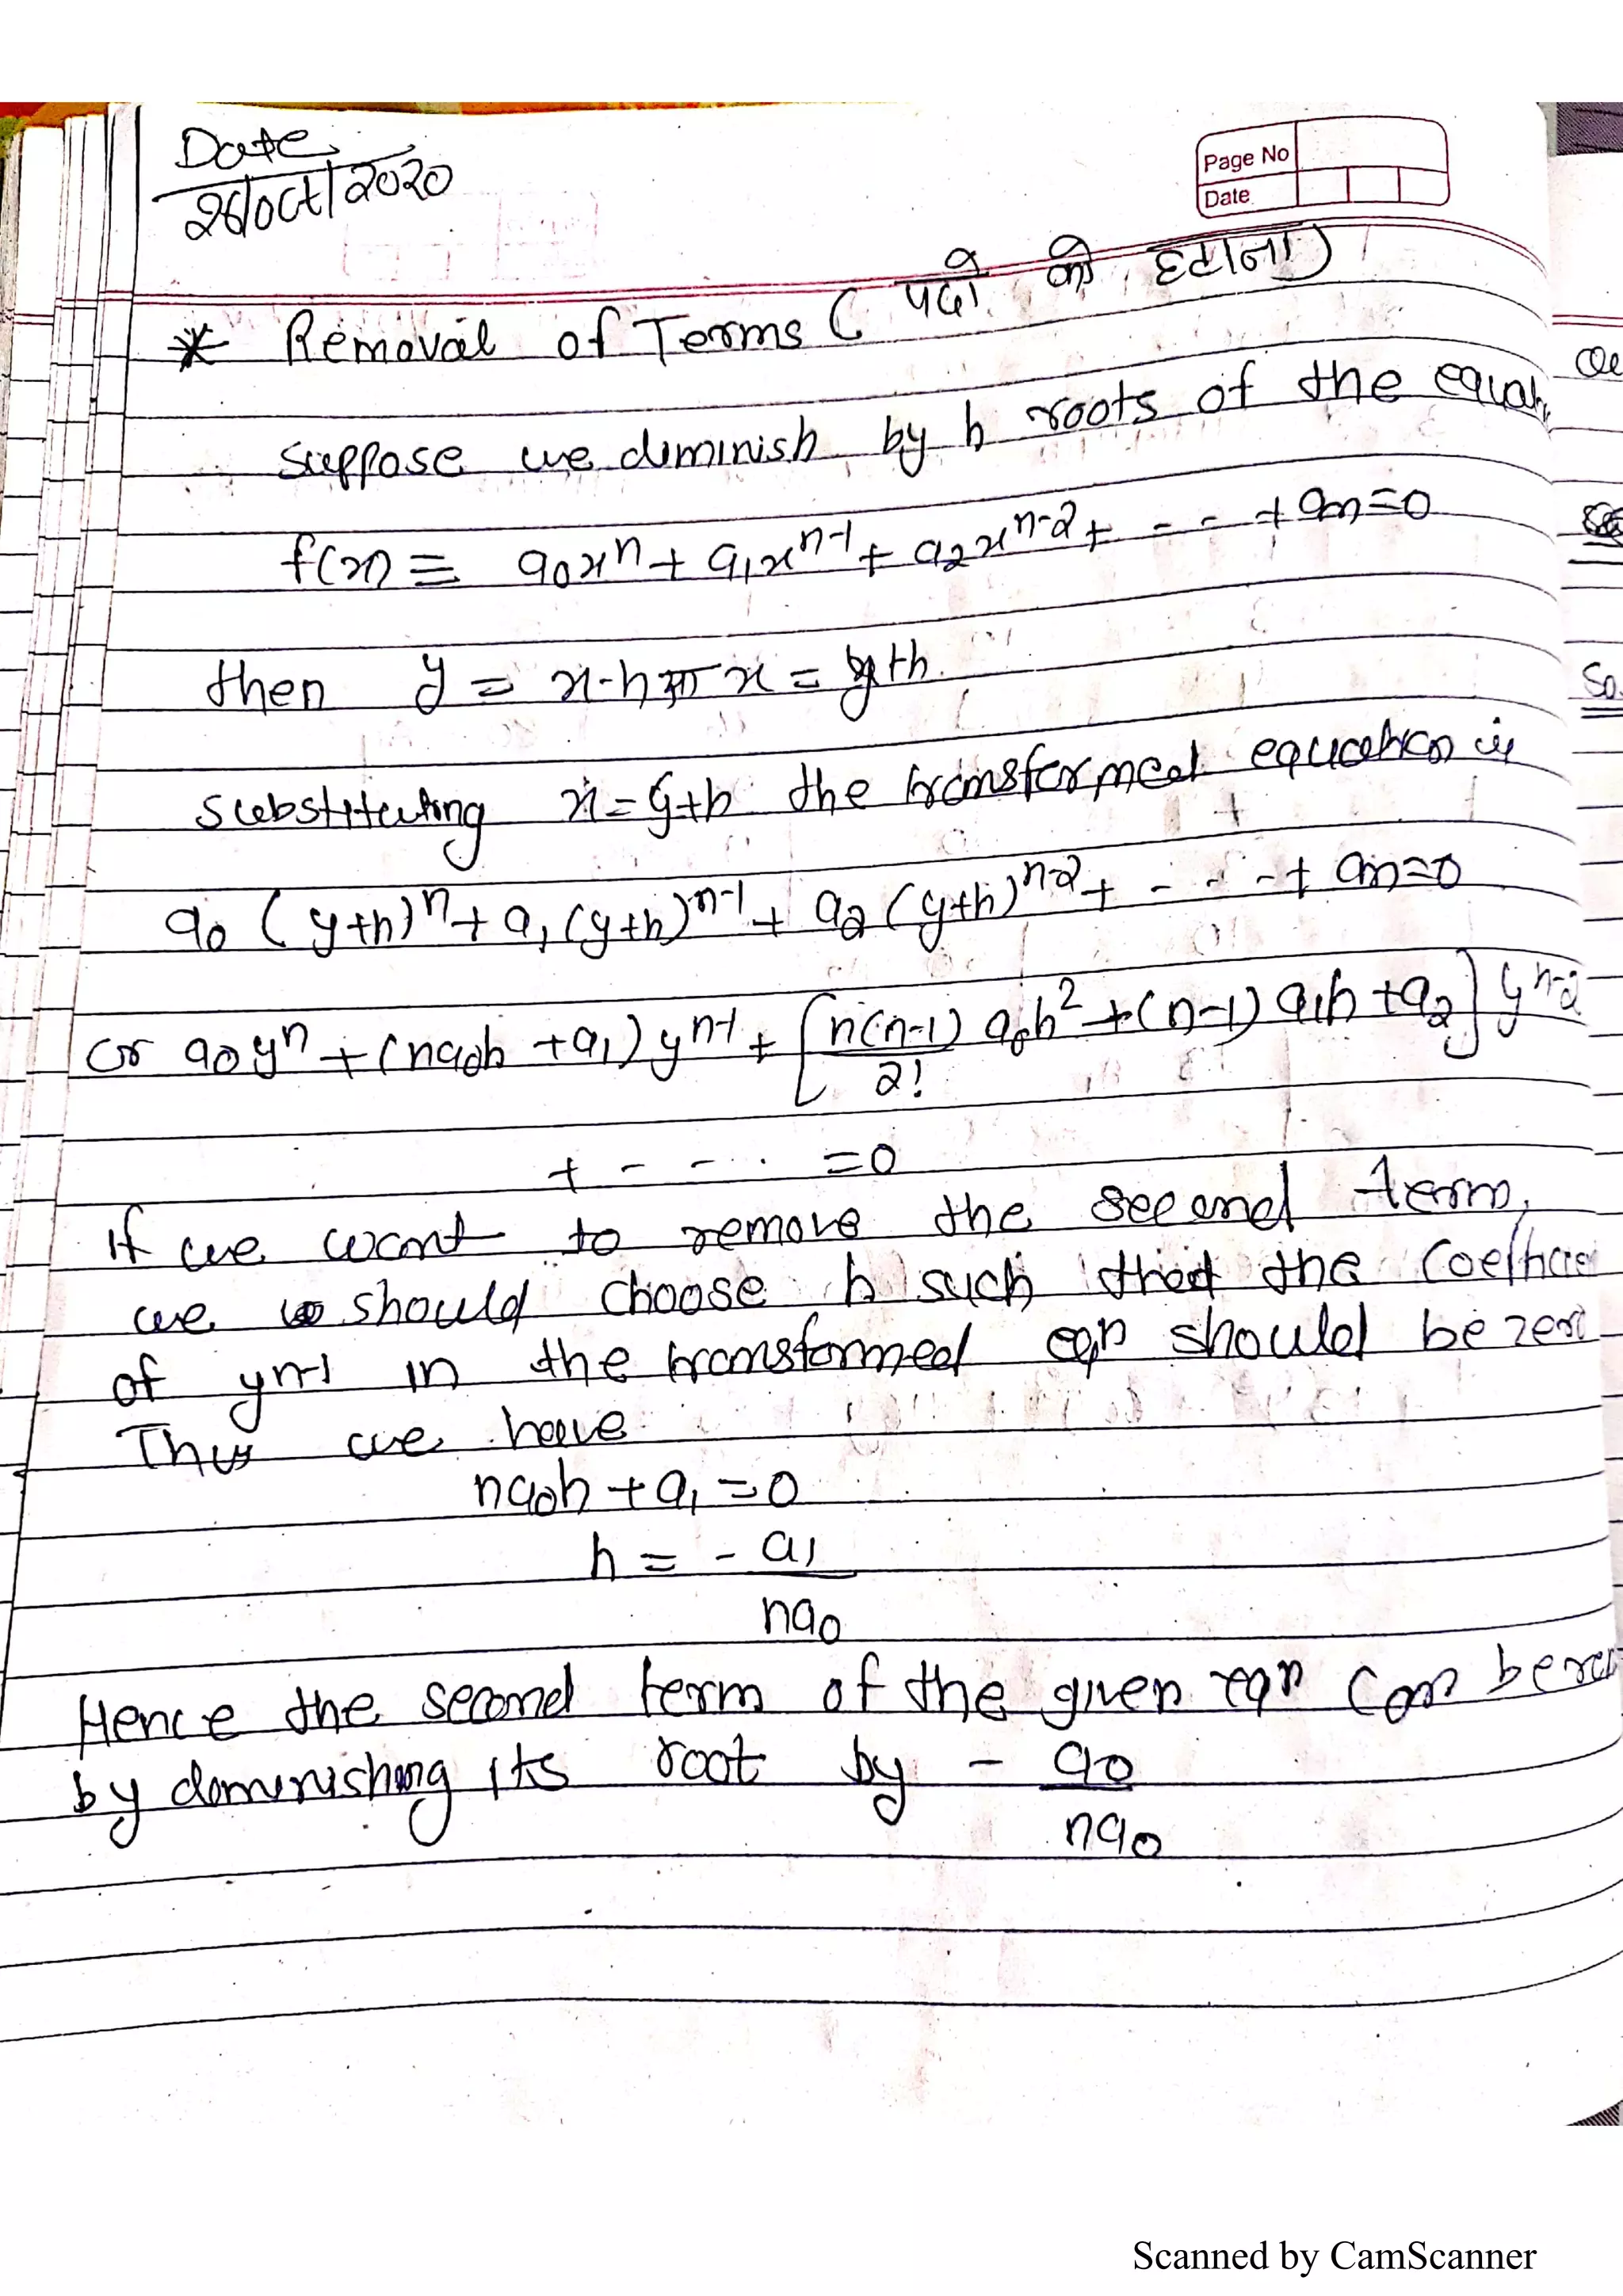 Date
26/Oct/2020
Page No
Date
* Removal of Terms ( पदो को हटाना)
suppose we diminish by h roots of the equat
f(x) ≡ a₀xⁿ + a₁xⁿ⁻¹ + a₂xⁿ⁻² + - - - + an = 0
then y = x-h या x = y+h.
substituting x = y+h the transformed equation is
a₀ (y+h)ⁿ + a₁ (y+h)ⁿ⁻¹ + a₂ (y+h)ⁿ⁻² + - - - + an = 0
or a₀yⁿ + (na₀h + a₁) yⁿ⁻¹ + [n(n-1)/2! a₀h² + (n-1) a₁h + a₂] yⁿ⁻²
+ - - . = 0
If we want to remove the second term,
we should choose h such that the Coefficie
of yn-1 in the transformed eqn should be zero
Thus we have
na₀h + a₁ = 0
h = - a₁/na₀
Hence the second term of the given eqn Can be
by dominishing its root by - a₀/na₀
So
Scanned by CamScanner